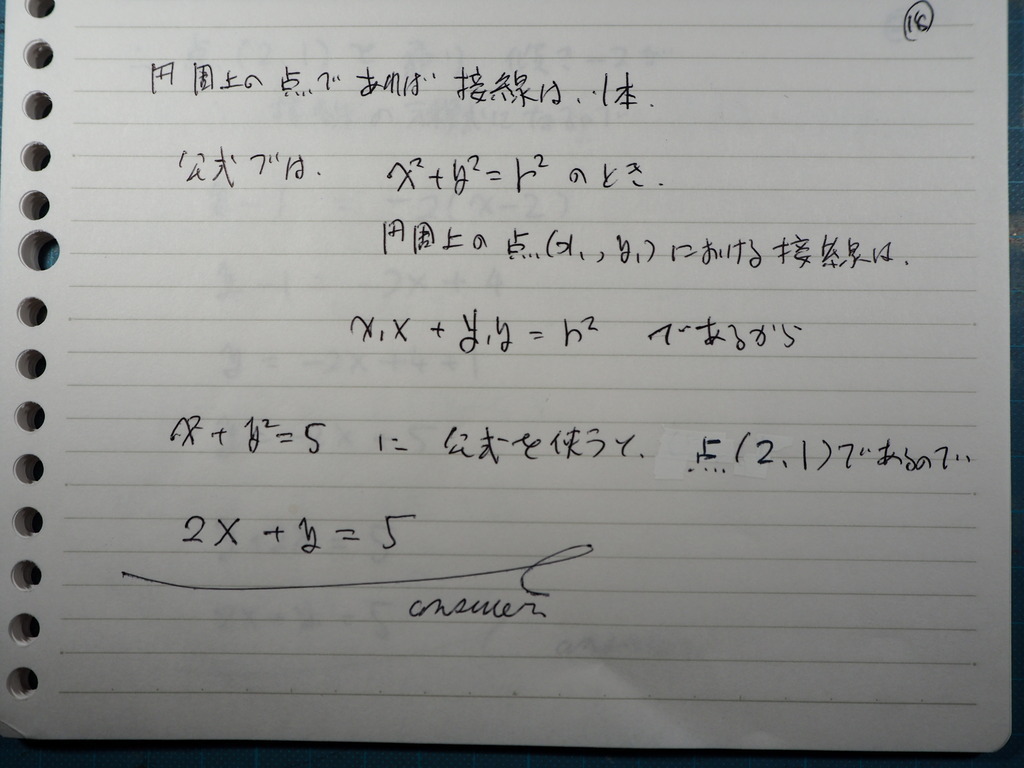 18
円周上の点であれば接線は、1本.
公式では. x²+y²=r² のとき.
円周上の点(x₁, y₁)における接線は.
x₁x + y₁y = r² であるから
x²+y²=5 に 公式を使うと、点(2,1)であるので
2x + y = 5
answer